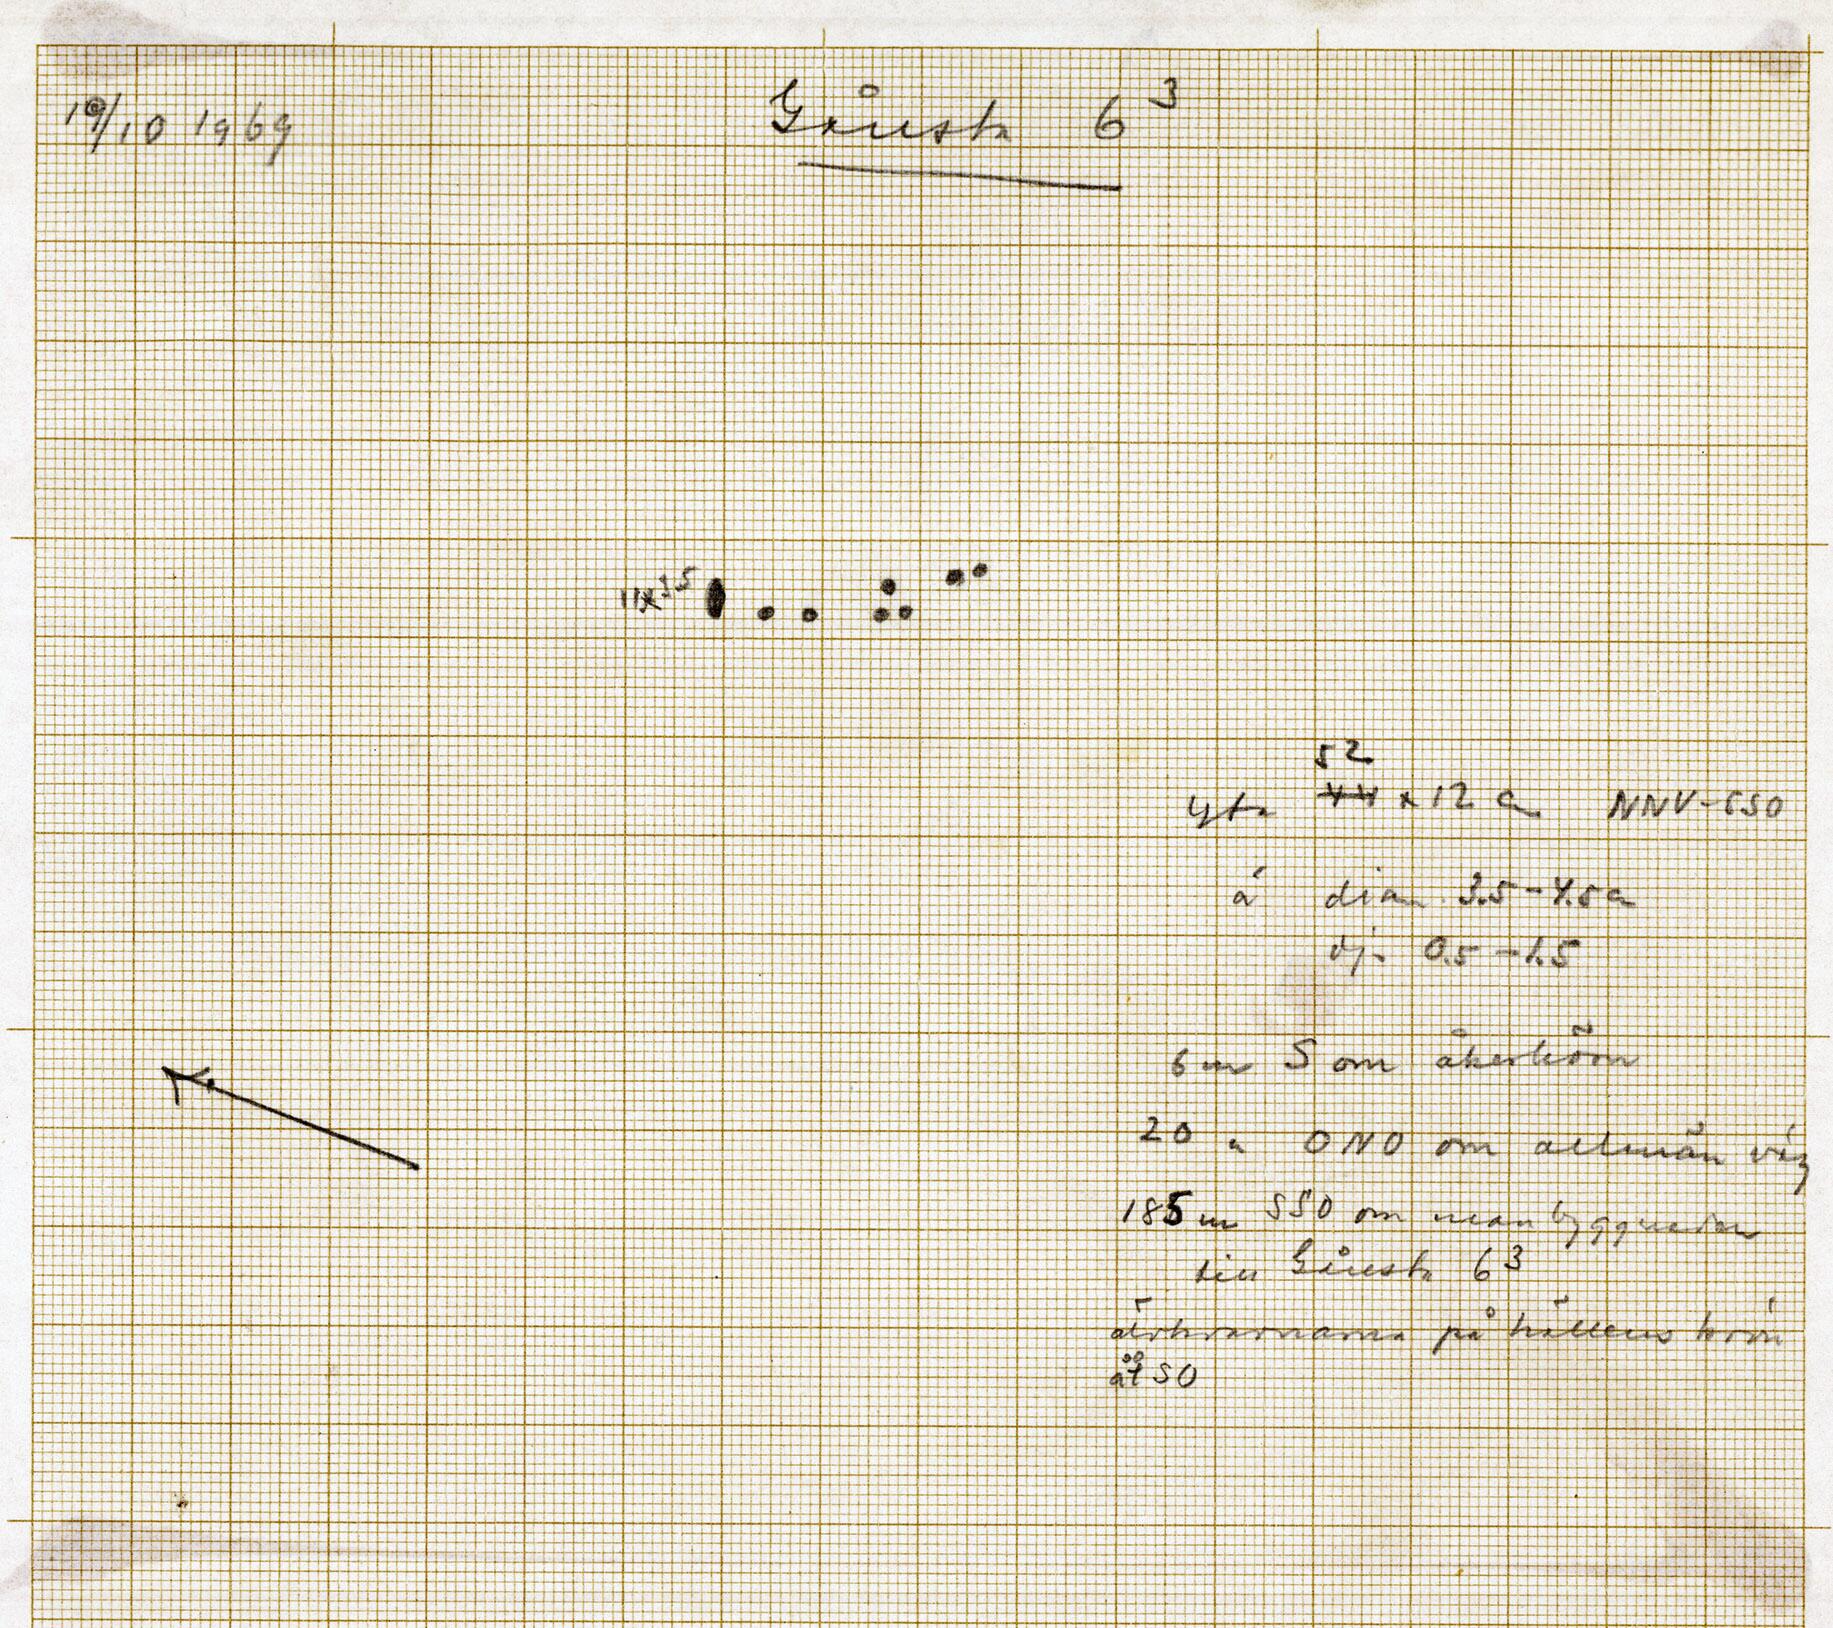 19/10 1969
Gåusta 6³
11x3.5
52
yta 44 x 12 cm NNV-SSO
á diam. 3.5-4.5 cm
dj. 0.5-1.5
6 m S om åkerhörn
20 " ONO om allmän väg
185 m SSO om manbyggnaden
till Gåusta 6³
älvkvarnarna på hällens krön
åt SO